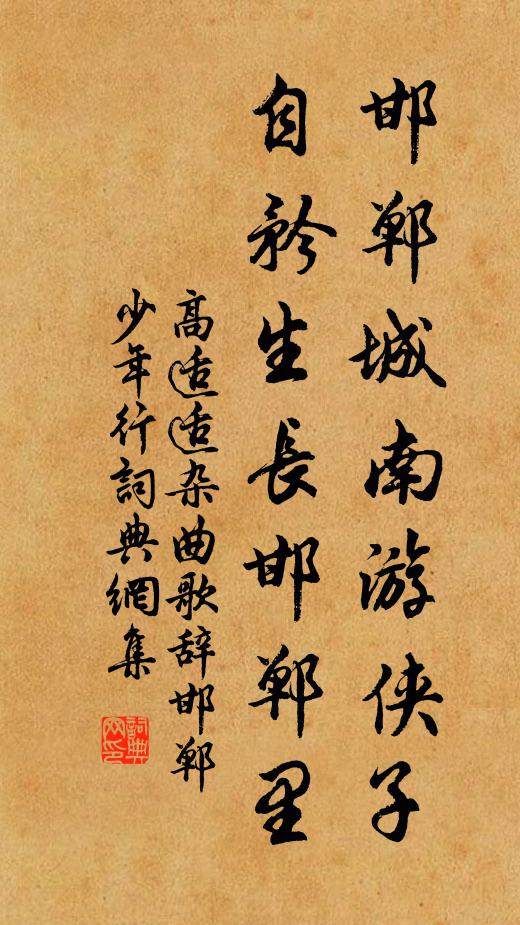 邯郸城南游侠子
自矜生長邯郸里
高适适杂曲歌辞邯郸
少年行詞典網集
詞典网印